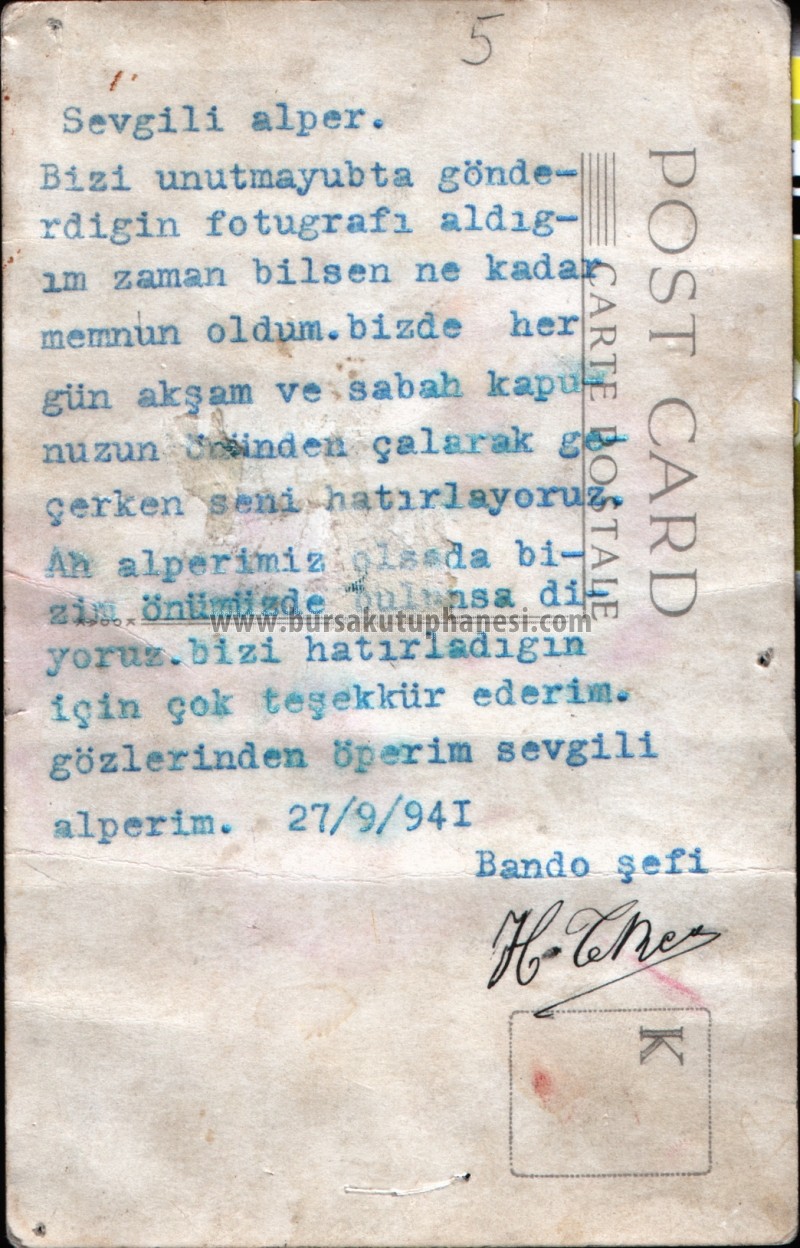 5
Sevgili alper.
Bizi unutmayubta gönde-
rdigin fotugrafı aldıg-
ım zaman bilsen ne kadar
memnun oldum.bizde her
gün akşam ve sabah kapu-
nuzun önünden çalarak ge-
çerken seni hatırlayoruz.
Ah alperimiz olsada bi-
zim önümüzde bulunsa di-
yoruz.bizi hatırladıgın
için çok teşekkür ederim.
gözlerinden öperim sevgili
alperim. 27/9/94I
Bando şefi
H.
POST CARD
CARTE POSTALE
K
www.bursakutuphanesi.com